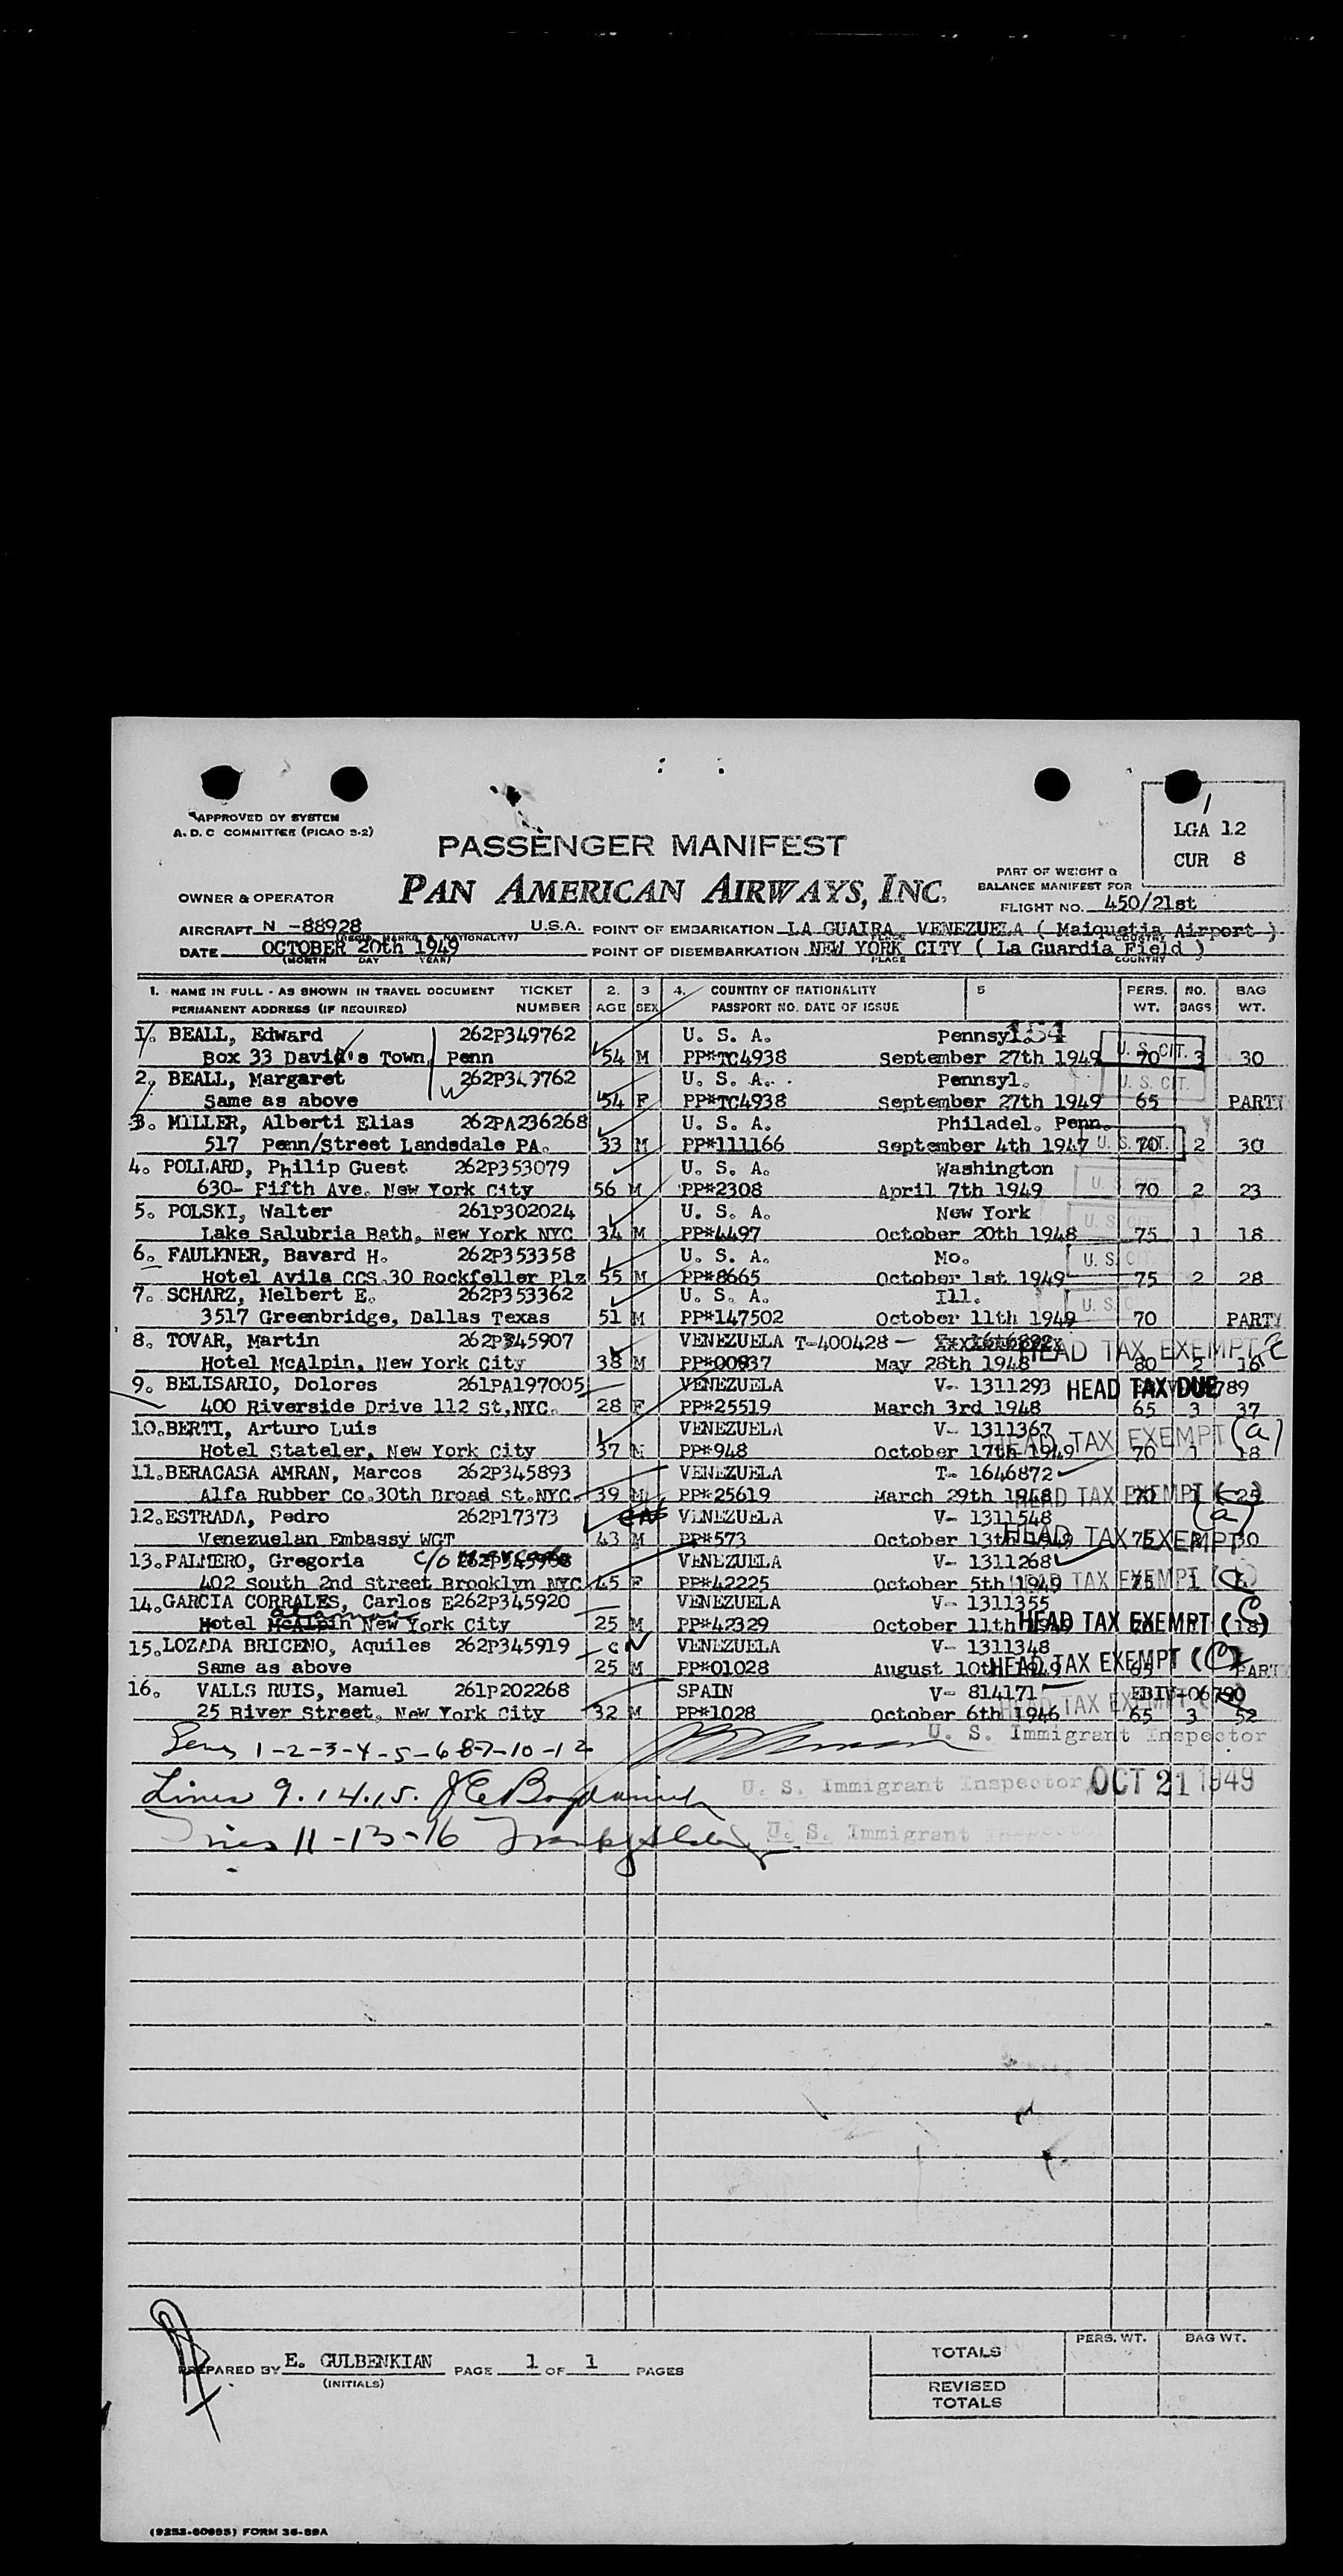 APPROVED BY SYSTEM
A. D. C COMMITTEE (PICAO S-2)
1
LGA 12
CUR 8
PASSENGER MANIFEST
PART OF WEIGHT &
BALANCE MANIFEST FOR
OWNER & OPERATOR PAN AMERICAN AIRWAYS, INC.
FLIGHT NO. 450/21st
AIRCRAFT N -88928 U.S.A. POINT OF EMBARKATION LA GUAIRA, VENEZUELA ( Maiquetia Airport )
DATE OCTOBER 20th 1949 POINT OF DISEMBARKATION NEW YORK CITY ( La Guardia Field )
(MONTH DAY YEAR) PLACE COUNTRY
1. NAME IN FULL - AS SHOWN IN TRAVEL DOCUMENT TICKET 2. 3 4. COUNTRY OF NATIONALITY 5 PERS. NO. BAG
PERMANENT ADDRESS (IF REQUIRED) NUMBER AGE SEX PASSPORT NO. DATE OF ISSUE WT. BAGS WT.
1. BEALL, Edward 262P349762 U. S. A. Pennsyl 154
Box 33 David's Town, Penn 54 M PP*TC4938 September 27th 1949 U. S. CIT. 70 3 30
2. BEALL, Margaret 262P349762 U. S. A. Pennsyl. U. S. CIT.
Same as above 54 F PP*TC4938 September 27th 1949 65 PARTY
3. MILLER, Alberti Elias 262PA236268 U. S. A. Philadel. Penn.
517 Penn/Street Landsdale PA. 33 M PP*111166 September 4th 1947 U. S. CIT. 70 2 30
4. POLLARD, Philip Guest 262P353079 U. S. A. Washington
630- Fifth Ave. New York City 56 M PP*2308 April 7th 1949 U. S. 70 2 23
5. POLSKI, Walter 261P302024 U. S. A. New York
Lake Salubria Bath, New York NYC 34 M PP*4497 October 20th 1948 U. S. CIT 75 1 18
6. FAULKNER, Bavard H. 262P353358 U. S. A. Mo.
Hotel Avila CCS.30 Rockfeller Plz 55 M PP*8665 October 1st 1949 U. S. CIT 75 2 28
7. SCHARZ, Melbert E. 262P353362 U. S. A. Ill.
3517 Greenbridge, Dallas Texas 51 M PP*147502 October 11th 1949 U. S. 70 PARTY
8. TOVAR, Martin 262P345907 VENEZUELA T-400428 HEAD TAX EXEMPT
Hotel McAlpin, New York City 38 M PP*00937 May 28th 1948 80 2 16
9. BELISARIO, Dolores 261PA197005 VENEZUELA V- 1311293 HEAD TAX DUE 789
400 Riverside Drive 112 St.NYC. 28 F PP*25519 March 3rd 1948 65 3 37
10. BERTI, Arturo Luis VENEZUELA V- 1311367 HEAD TAX EXEMPT (a)
Hotel Stateler, New York City 37 M PP*948 October 17th 1949 70 1 18
11. BERACASA AMRAN, Marcos 262P345893 VENEZUELA T- 1646872
Alfa Rubber Co.30th Broad St.NYC. 39 M PP*25619 March 29th 1948 HEAD TAX EXEMPT
12. ESTRADA, Pedro 262P17373 VENEZUELA V- 1311548 (a)
Venezuelan Embassy WGT 43 M PP*573 October 13th 1949 HEAD TAX EXEMPT 75 30
13. PALMERO, Gregoria c/o VENEZUELA V- 1311268
402 South 2nd Street Brooklyn NYC 45 F PP*42225 October 5th 1949 HEAD TAX EXEMPT 75 1
14. GARCIA CORRALES, Carlos E 262P345920 VENEZUELA V- 1311355
Hotel McAlpin New York City 25 M PP*42329 October 11th HEAD TAX EXEMPT 18
15. LOZADA BRICENO, Aquiles 262P345919 VENEZUELA V- 1311348
Same as above 25 M PP*01028 August 10th 1949 HEAD TAX EXEMPT 65 PARTY
16. VALLS RUIS, Manuel 261P202268 SPAIN V- 814171
25 River Street, New York City 32 M PP*1028 October 6th 1946 HEAD TAX EXEMPT 65 3 52
1-2-3-4-5-6-8-7-10-12 U. S. Immigrant Inspector
Lines 9.14.15. U. S. Immigrant Inspector OCT 21 1949
Lines 11-13-16 U. S. Immigrant Inspector
PREPARED BY E. GULBENKIAN PAGE 1 OF 1 PAGES
(INITIALS)
PERS. WT. BAG WT.
TOTALS
REVISED
TOTALS
(9253-60685) FORM 36-89A